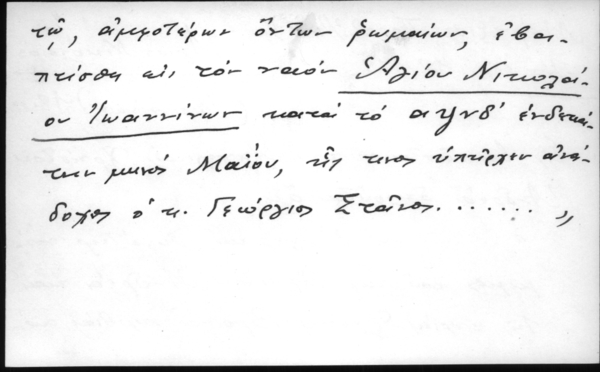 τῷ, ἀμφοτέρων ὄντων ῥωμαίων, ἐβα-
πτίσθη εἰς τόν ναόν Ἁγίου Νικολά-
ου Ἰωαννίνων κατά τό αψνδ' ἑνδεκά-
την μηνός Μαΐου, τῆς τινος ὑπῆρχεν ἀνά-
δοχος ὁ κ. Γεώργιος Σταῖνος. ...... "